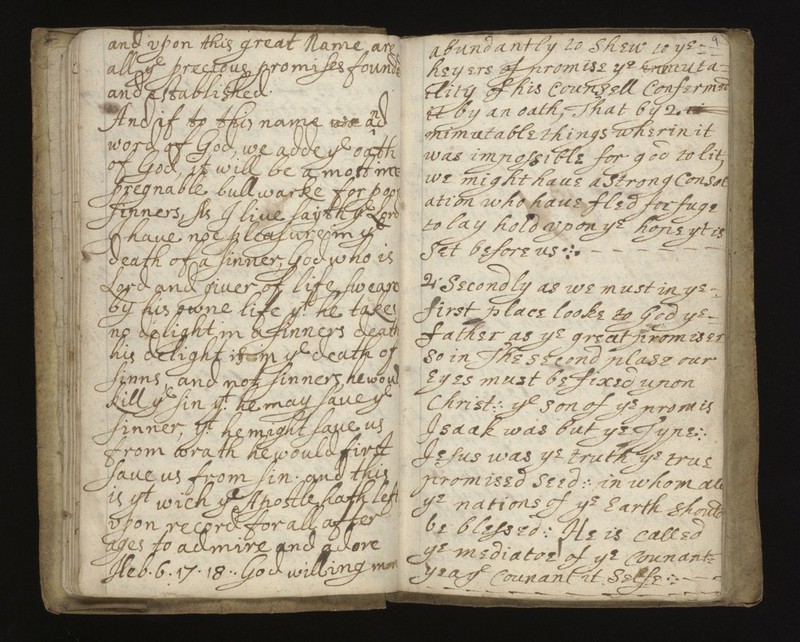 and vpon this great Name are
all yᵉ precious promises founde
and established.
And if to this name and
word of God, we adde yᵉ oath
of God, it will be a most
pregnable bullwarke for poor
sinners, As I live saith yᵉ Lord
I have noe pleasure in yᵉ
death of a sinner, God who is
Lord and giuer of life, sweare
by his owne life yᵗ he takes
no delight in a sinners death
his delight is in yᵉ death of
sinns, and not sinners, he woul
kill yᵉ sin yᵗ he may saue yᵉ
sinner, yᵗ he might saue us
from wrath he would first
saue us from sin. and this
is yᵗ wich yᵉ Apostle hath left
vpon record for all after
ages to admire and adore
Heb. 6. 17. 18. God willing mor
9
abundantly to shew to yᵉ
heyers of promise yᵉ immuta-
elity of his Counsell Confermed
it by an oath, That by 2
immutable things wherin it
was impossible for god to lit,
we might haue a strong Consol
ation who haue fled for fuge
to lay hold vpon yᵉ hope yᵗ is
set before us
2 Secondly as we must in yᵉ
first place looke to God yᵉ
father as yᵉ great promiser
so in The second plase our
Eyes must be fixed upon
Christ: yᵉ son of yᵉ promis
Isaak was but yᵉ Type:
Jesus was yᵉ truth yᵉ true
promised Seed: in whom all
yᵉ nations of yᵉ Earth should
be blessed: He is called
yᵉ mediator of yᵉ Counant:
yea yᵉ Counant it Selfe: